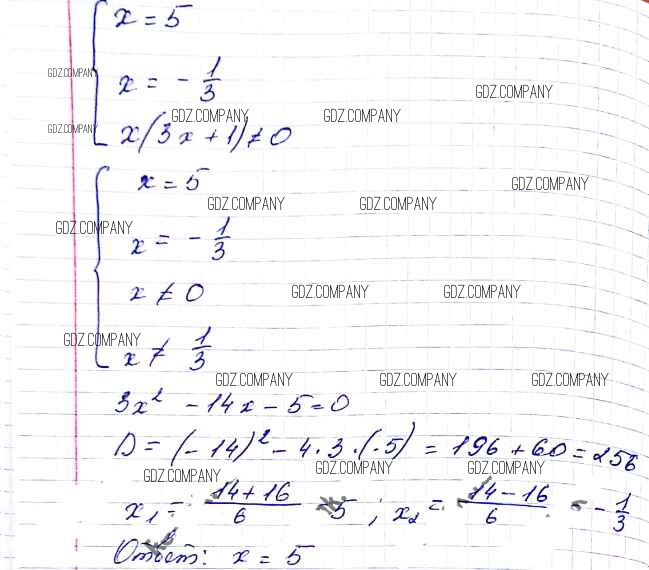 x = 5
GDZ.COMPANY
x = - 1/3
GDZ.COMPANY
GDZ.COMPANY GDZ.COMPANY
GDZ.COMPANY
x(3x+1) ≠ 0
x = 5
GDZ.COMPANY
GDZ.COMPANY GDZ.COMPANY
GDZ.COMPANY
x = - 1/3
x ≠ 0
GDZ.COMPANY GDZ.COMPANY
GDZ.COMPANY
x ≠ 1/3
GDZ.COMPANY GDZ.COMPANY GDZ.COMPANY
3x² - 14x - 5 = 0
D = (-14)² - 4·3·(-5) = 196 + 60 = 256
GDZ.COMPANY GDZ.COMPANY GDZ.COMPANY
x₁ = 14+16/6 = 5 ; x₂ = 14-16/6 = - 1/3
Ответ: x = 5